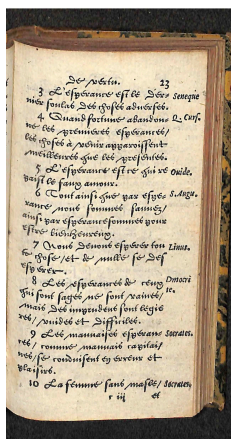 de vertu. 23
3 L'esperance est le der- Seneque
nier soulas des choses adverses.
4 Quand fortune abandon- Q. Curs.
ne les premieres esperances/
les choses à venir apparoissent
meilleures que les presentes.
5 L'esperance est ce qui re Ouide.
paist le
amour.
6 Tout ainsi que par espe- S. Augu.
rance nous sommes sauvez/
ainsi par esperance sommes pour
estre bienheureux.
7 Nous devons esperer tou Linus.
te chose/ et de nulle se des
esperer.
8 Les esperances de ceux Democri
qui sont sages ne sont vaines/ te.
mais des imprudens sont legie
res/ vuides et difficiles.
9 Les mauvaises esperan- Socrates.
ces/ comme mauvais capitai-
nes/ se conduisent en erreur et
plaisirs.
10 La femme sans masle/ Socrates,
r iij et